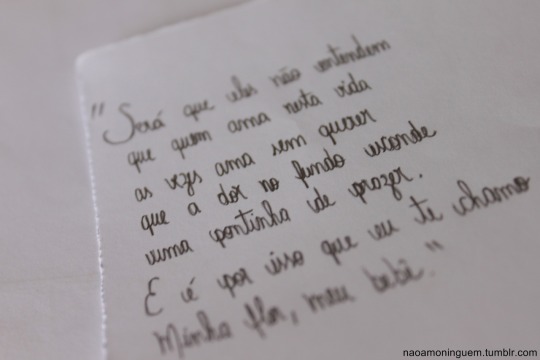 "Será que eles não entendem
que quem ama nesta vida
as vezes ama sem querer
que a dor no fundo esconde
uma pontinha de prazer.
E é por isso que eu te chamo
Minha flor, meu bebê."
naoamoninguem.tumblr.com